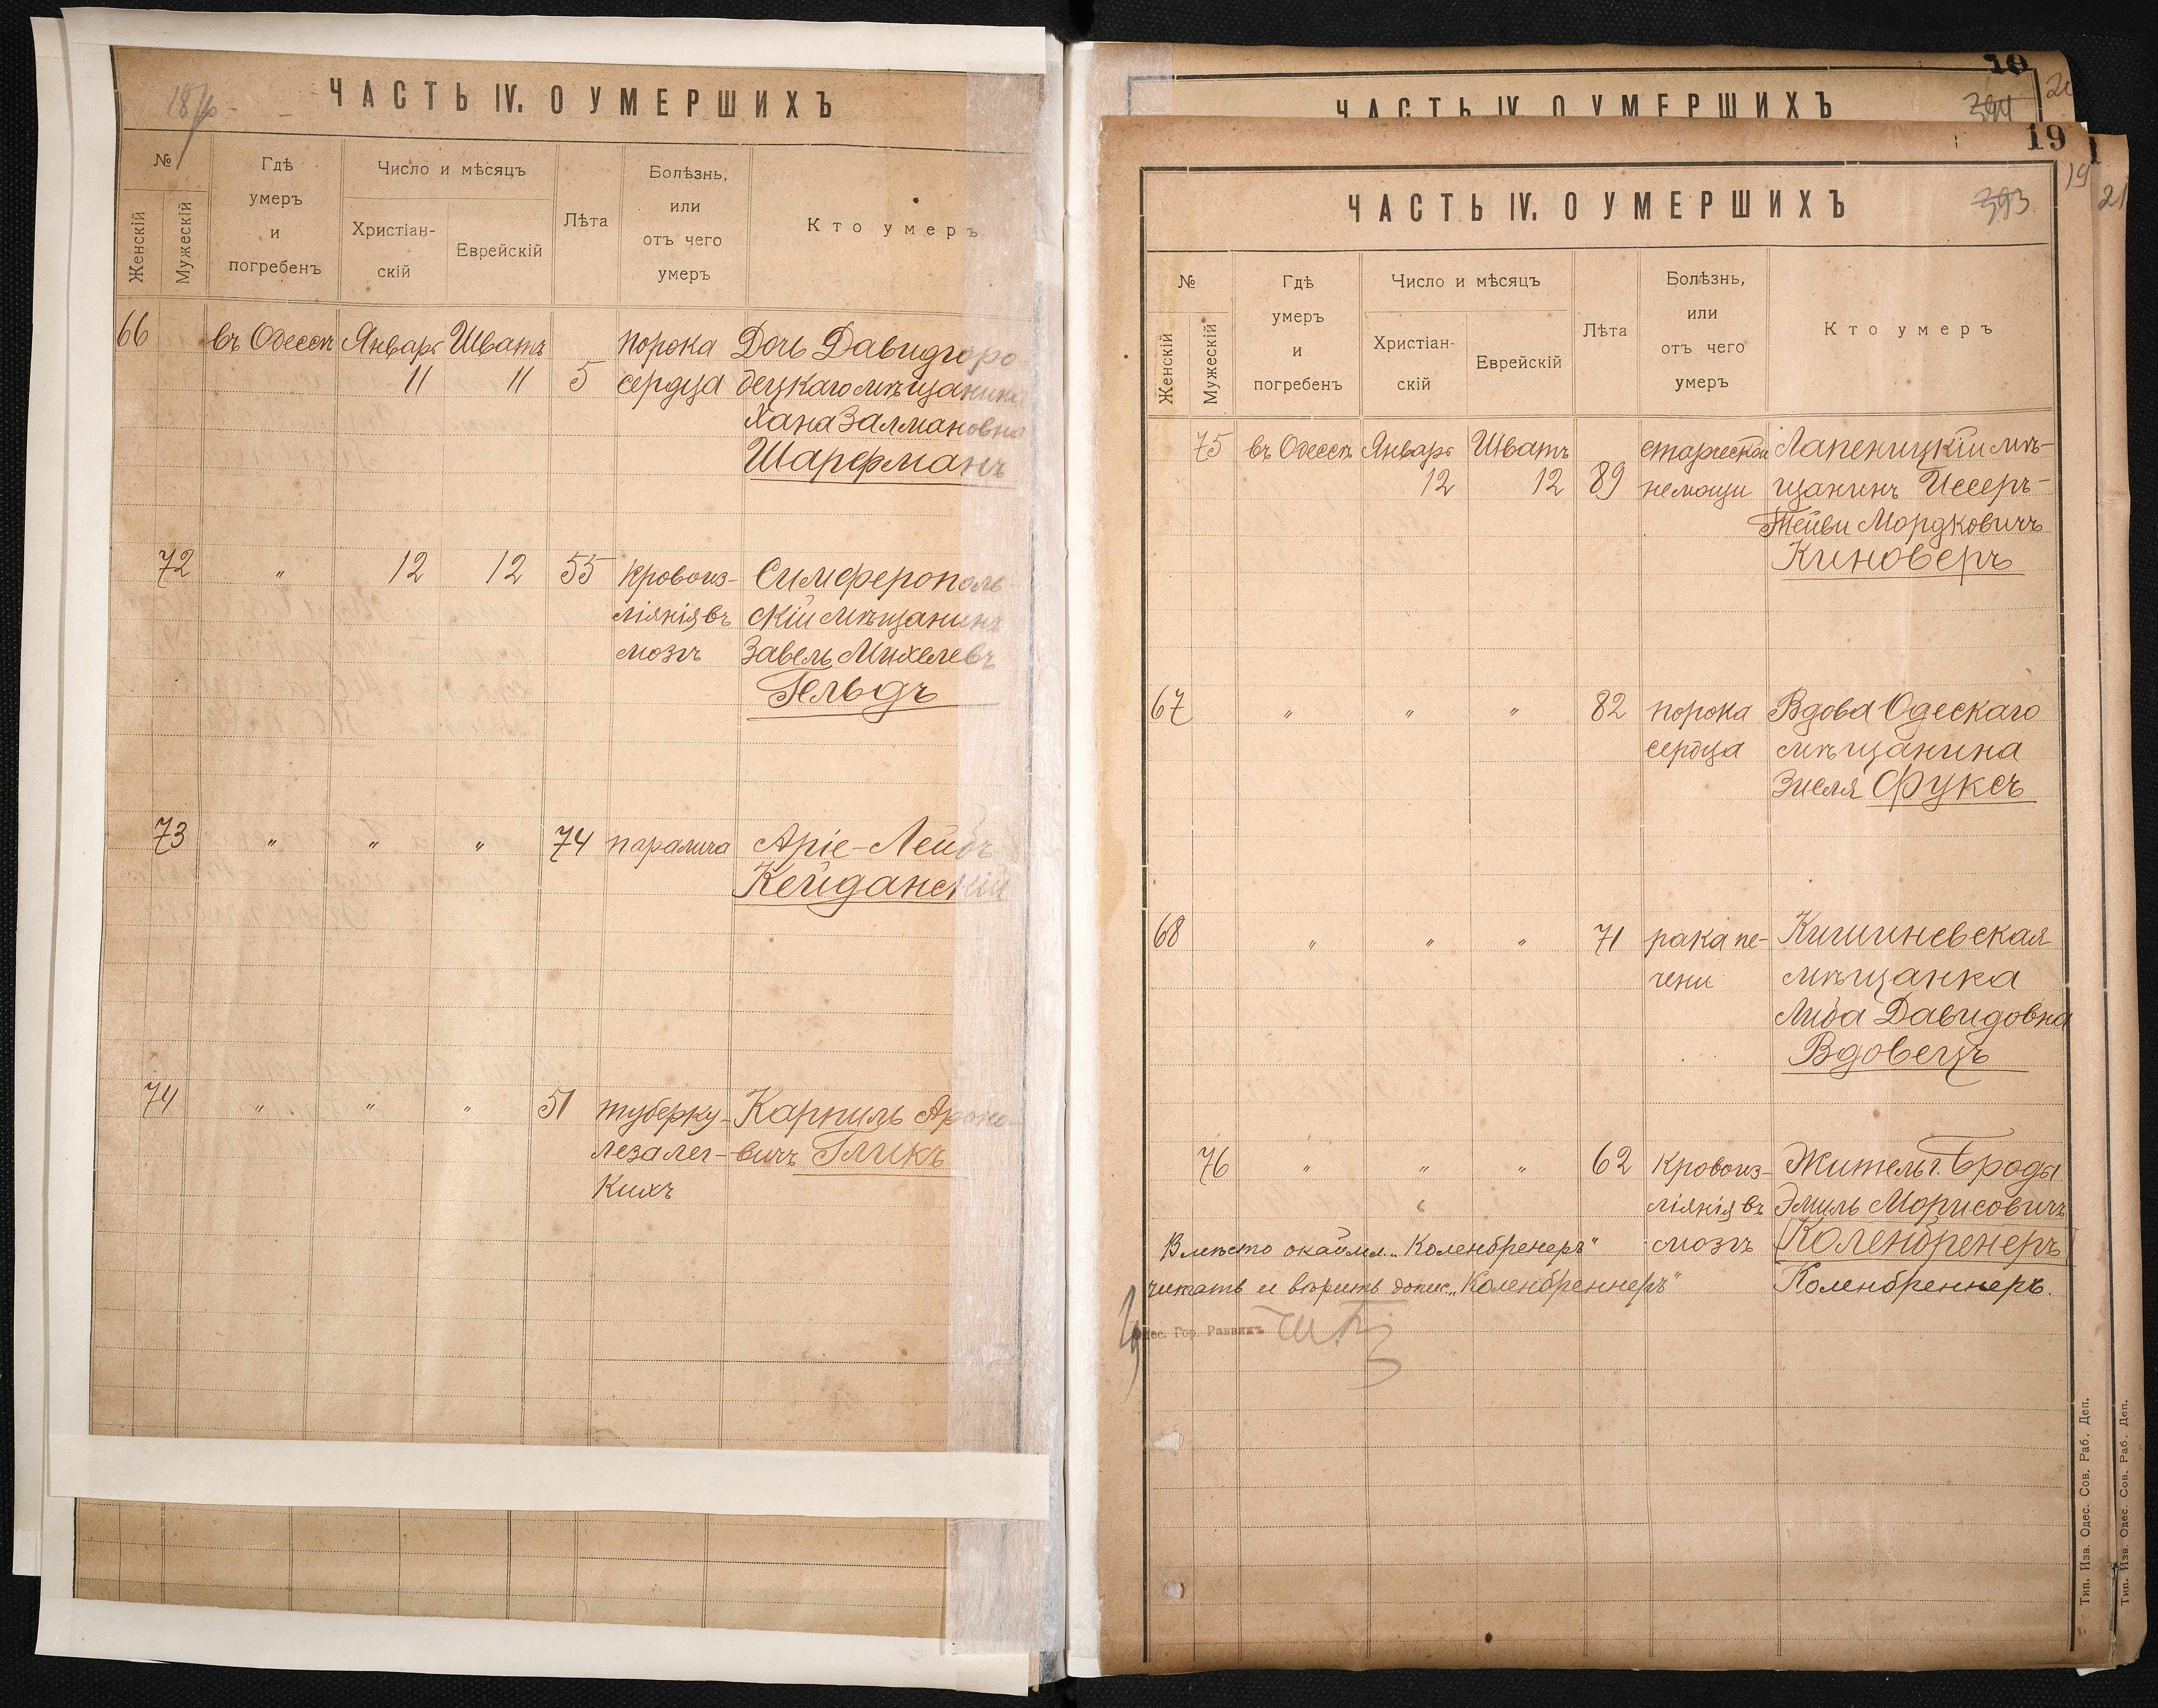 ЧАСТЬ IV. О УМЕРШИХЪ
№
Женскій
Мужескій
Гдѣ
умеръ
и
погребенъ
Число и мѣсяцъ
Христіан-
скій
Еврейскій
Лѣта
Болѣзнь,
или
отъ чего
умеръ
Кто умеръ
66 въ Одессѣ Январь Шватъ порока Дочь Давидгоро-
11 11 5 сердца децкаго мѣщанина
Хана Залмановна
Шарфманъ
72 " 12 12 55 кровоиз- Симферополь-
ліянія въ скій мѣщанинъ
мозгъ Завель Михелевъ
Гельдъ
73 " " " 74 паралича Аріе-Лейбъ
Кейданскій
74 " " " 51 туберку- Карпиль Ароно-
леза лег- вичъ Гликъ
кихъ
10
ЧАСТЬ IV. О УМЕРШИХЪ
394
19
19
21
ЧАСТЬ IV. О УМЕРШИХЪ
393
№
Женскій
Мужескій
Гдѣ
умеръ
и
погребенъ
Число и мѣсяцъ
Христіан-
скій
Еврейскій
Лѣта
Болѣзнь,
или
отъ чего
умеръ
Кто умеръ
75 въ Одессѣ Январь Шватъ старческой Лапеницкій мѣ-
12 12 89 немощи щанинъ Иссеръ-
Тейви Мордковичъ
Киноверъ
67 " " " 82 порока Вдова Одескаго
сердца мѣщанина
Зиселя Фуксъ
68 " " " 71 рака пе- Кишиневская
чени мѣщанка
Либа Давидовна
Вдовецъ
76 " " " 62 кровоиз- Житель г. Броды
ліянія въ Эмиль Морисовичъ
мозгъ Коленбренеръ
Вмѣсто окаймл. „Коленбренеръ"
читать и вѣрить допис. „Коленбреннеръ" Коленбреннеръ.
Одес. Гор. Раввинъ
Тип. Изв. Одес. Сов. Раб. Деп.
Тип. Изв. Одес. Сов. Раб. Деп.